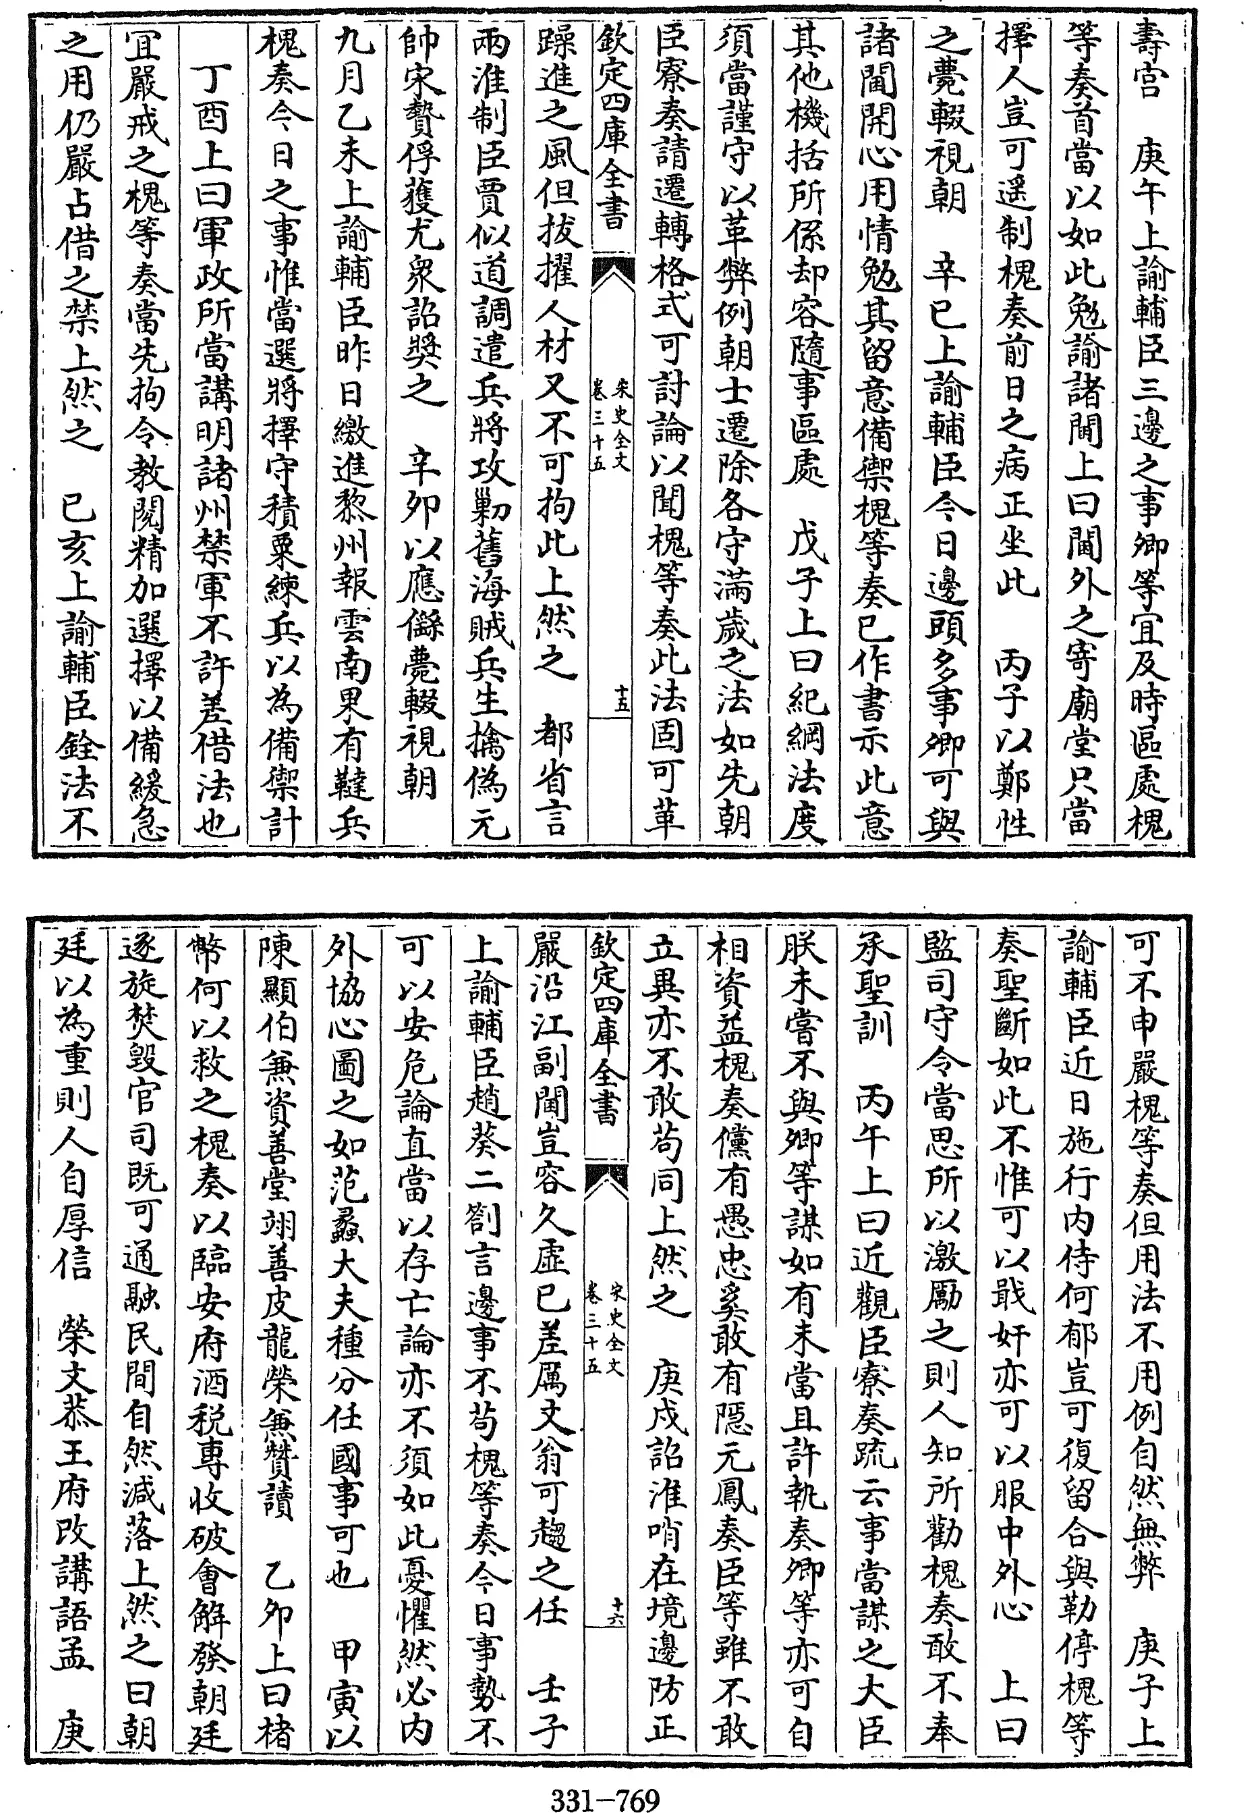 壽宮　庚午上諭輔臣三邊之事卿等宜及時區處槐
等奏首當以如此勉諭諸閫上曰閫外之寄廟堂只當
擇人豈可遥制槐奏前日之病正坐此　丙子以鄭性
之薨輟視朝　辛巳上諭輔臣今日邊頭多事卿可與
諸閫開心用情勉其留意備禦槐等奏已作書示此意
其他機括所係却容隨事區處　戊子上曰紀綱法度
須當謹守以革弊例朝士遷除各守滿歲之法如先朝
臣寮奏請遷轉格式可討論以聞槐等奏此法固可革
欽定四庫全書
宋史全文
卷三十五
十五
躁進之風但拔擢人材又不可拘此上然之　都省言
兩淮制臣賈似道調遣兵將攻剿舊海賊兵生擒偽元
帥宋贇俘獲尤衆詔獎之　辛卯以應𦅸薨輟視朝
九月乙未上諭輔臣昨日繳進黎州報雲南果有韃兵
槐奏今日之事惟當選將擇守積粟練兵以為備禦計
丁酉上曰軍政所當講明諸州禁軍不許差借法也
宜嚴戒之槐等奏當先拘令教閱精加選擇以備緩急
之用仍嚴占借之禁上然之　已亥上諭輔臣銓法不
可不申嚴槐等奏但用法不用例自然無弊　庚子上
諭輔臣近日施行内侍何郁豈可復留合與勒停槐等
奏聖斷如此不惟可以戢奸亦可以服中外心　上曰
監司守令當思所以激勵之則人知所勸槐奏敢不奉
承聖訓　丙午上曰近觀臣寮奏疏云事當謀之大臣
朕未嘗不與卿等謀如有未當且許執奏卿等亦可自
相資益槐奏儻有愚忠奚敢有隠元鳳奏臣等雖不敢
立異亦不敢苟同上然之　庚戌詔淮哨在境邊防正
欽定四庫全書
宋史全文
卷三十五
十六
嚴沿江副閫豈容久虛已差厲文翁可趨之任　壬子
上諭輔臣趙葵二劄言邊事不苟槐等奏今日事勢不
可以安危論直當以存亡論亦不須如此憂懼然必内
外協心圖之如范蠡大夫種分任國事可也　甲寅以
陳顯伯兼資善堂翊善皮龍榮兼贊讀　乙卯上曰楮
幣何以救之槐奏以臨安府酒税專收破會解發朝廷
逐旋焚毀官司既可通融民間自然減落上然之曰朝
廷以為重則人自厚信　榮文恭王府改講語孟　庚
331-769